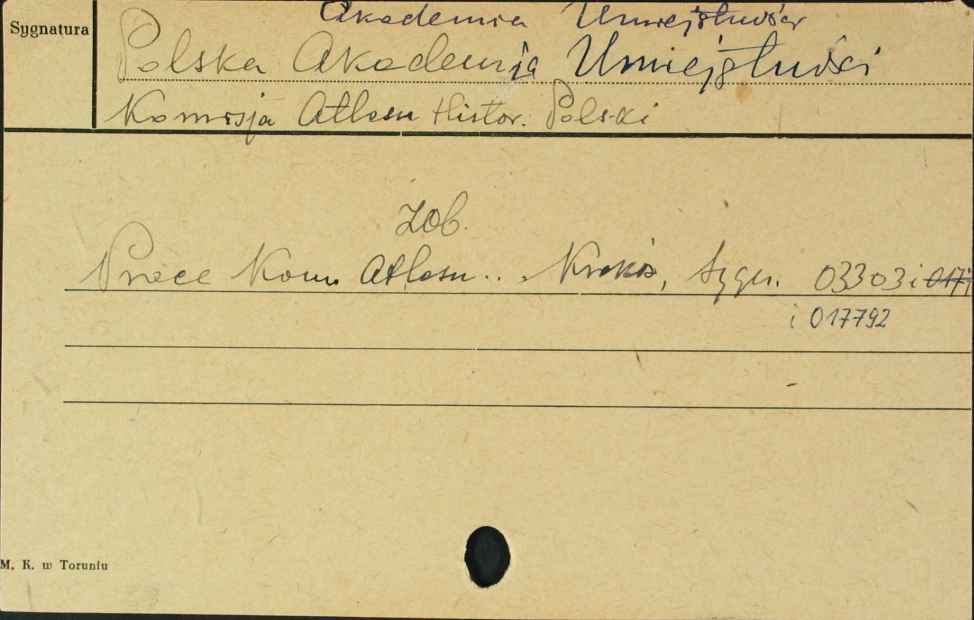 Akademia Umiejętności
Sygnatura
Polska Akademia Umiejętności
Komisja Atlasu Histor. Polski
Zob.
Prace Kom. Atlasu.. Kraków, Sygn. 03303 i 017i
i 017792
M. K. w Toruniu